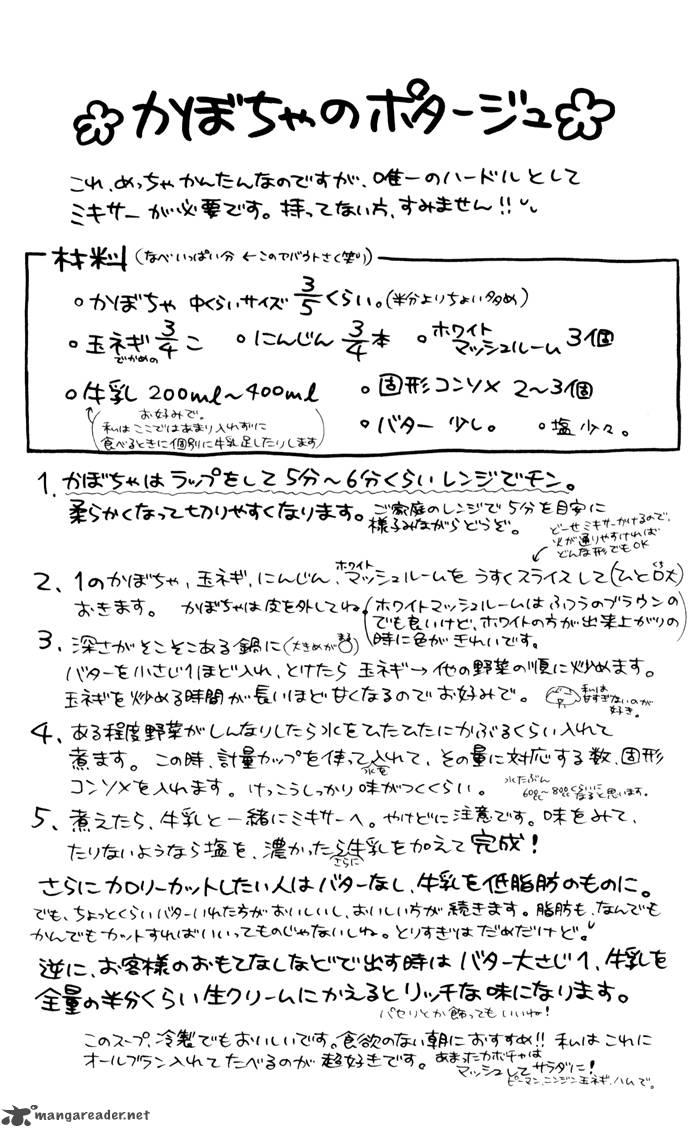 かぼちゃのポタージュ
これ、めっちゃかんたんなのですが、唯一のハードルとして
ミキサーが必要です。持ってない方、すみません!!
材料(なべいっぱい分 ←このアバウトさ(笑))
○かぼちゃ 中くらいサイズ 3/5くらい。(半分よりちょい多め)
○玉ネギ 3/4こ ○にんじん 3/4本 ○ホワイトマッシュルーム 3個
でかめの
○牛乳 200ml〜400ml ○固形コンソメ 2〜3個
お好みで。
私はここではあまり入れずに
食べるときに個別に牛乳足したりします
○バター 少し。 ○塩 少々。
1. かぼちゃはラップをして5分〜6分くらいレンジでチン。
柔らかくなって切りやすくなります。ご家庭のレンジで5分を目安に
様子みながらどうぞ。
どーせミキサーかけるので、
火が通りやすければ
どんな形でもOK
2. 1のかぼちゃ、玉ネギ、にんじん、ホワイトマッシュルームをうすくスライスして(ひと口大)
おきます。 かぼちゃは皮を外してね。
(ホワイトマッシュルームはふつうのブラウンの
でも良いけど、ホワイトの方が出来上がりの
時に色がきれいです。
3. 深さがそこそこある鍋に(大きめが◎)
バターを小さじ1ほど入れ、とけたら 玉ネギ→他の野菜の順に炒めます。
玉ネギを炒める時間が長いほど甘くなるのでお好みで。
私は
甘すぎないのが
好き。
4. ある程度野菜がしんなりしたら水をひたひたにかぶるくらい入れて
煮ます。この時、計量カップを使って水を入れて、その量に対応する数、固形
コンソメを入れます。けっこうしっかり味がつくくらい。
水たぶん
600cc〜800ccくらいに
なると思います。
5. 煮えたら、牛乳と一緒にミキサーへ。やけどに注意です。味をみて、
たりないようなら塩を、濃かったらさらに牛乳を加えて完成!
さらにカロリーカットしたい人はバターなし、牛乳を低脂肪のものに。
でも、ちょっとくらいバターいれた方がおいしいし、おいしい方が続きます。脂肪も、なんでも
かんでもカットすればいいってものじゃないしね。とりすぎはだめだけど。
逆に、お客様のおもてなしなどで出す時は バター大さじ1、牛乳を
全量の半分くらい生クリームにかえるとリッチな味になります。
パセリとか飾ってもいいね!
このスープ、冷製でもおいしいです。食欲のない朝におすすめ!! 私はこれに
オールブラン入れてたべるのが超好きです。
あまったカボチャは
マッシュしてサラダに!
ピーマン、ニンジン、玉ネギ、ハムで。
mangareader.net